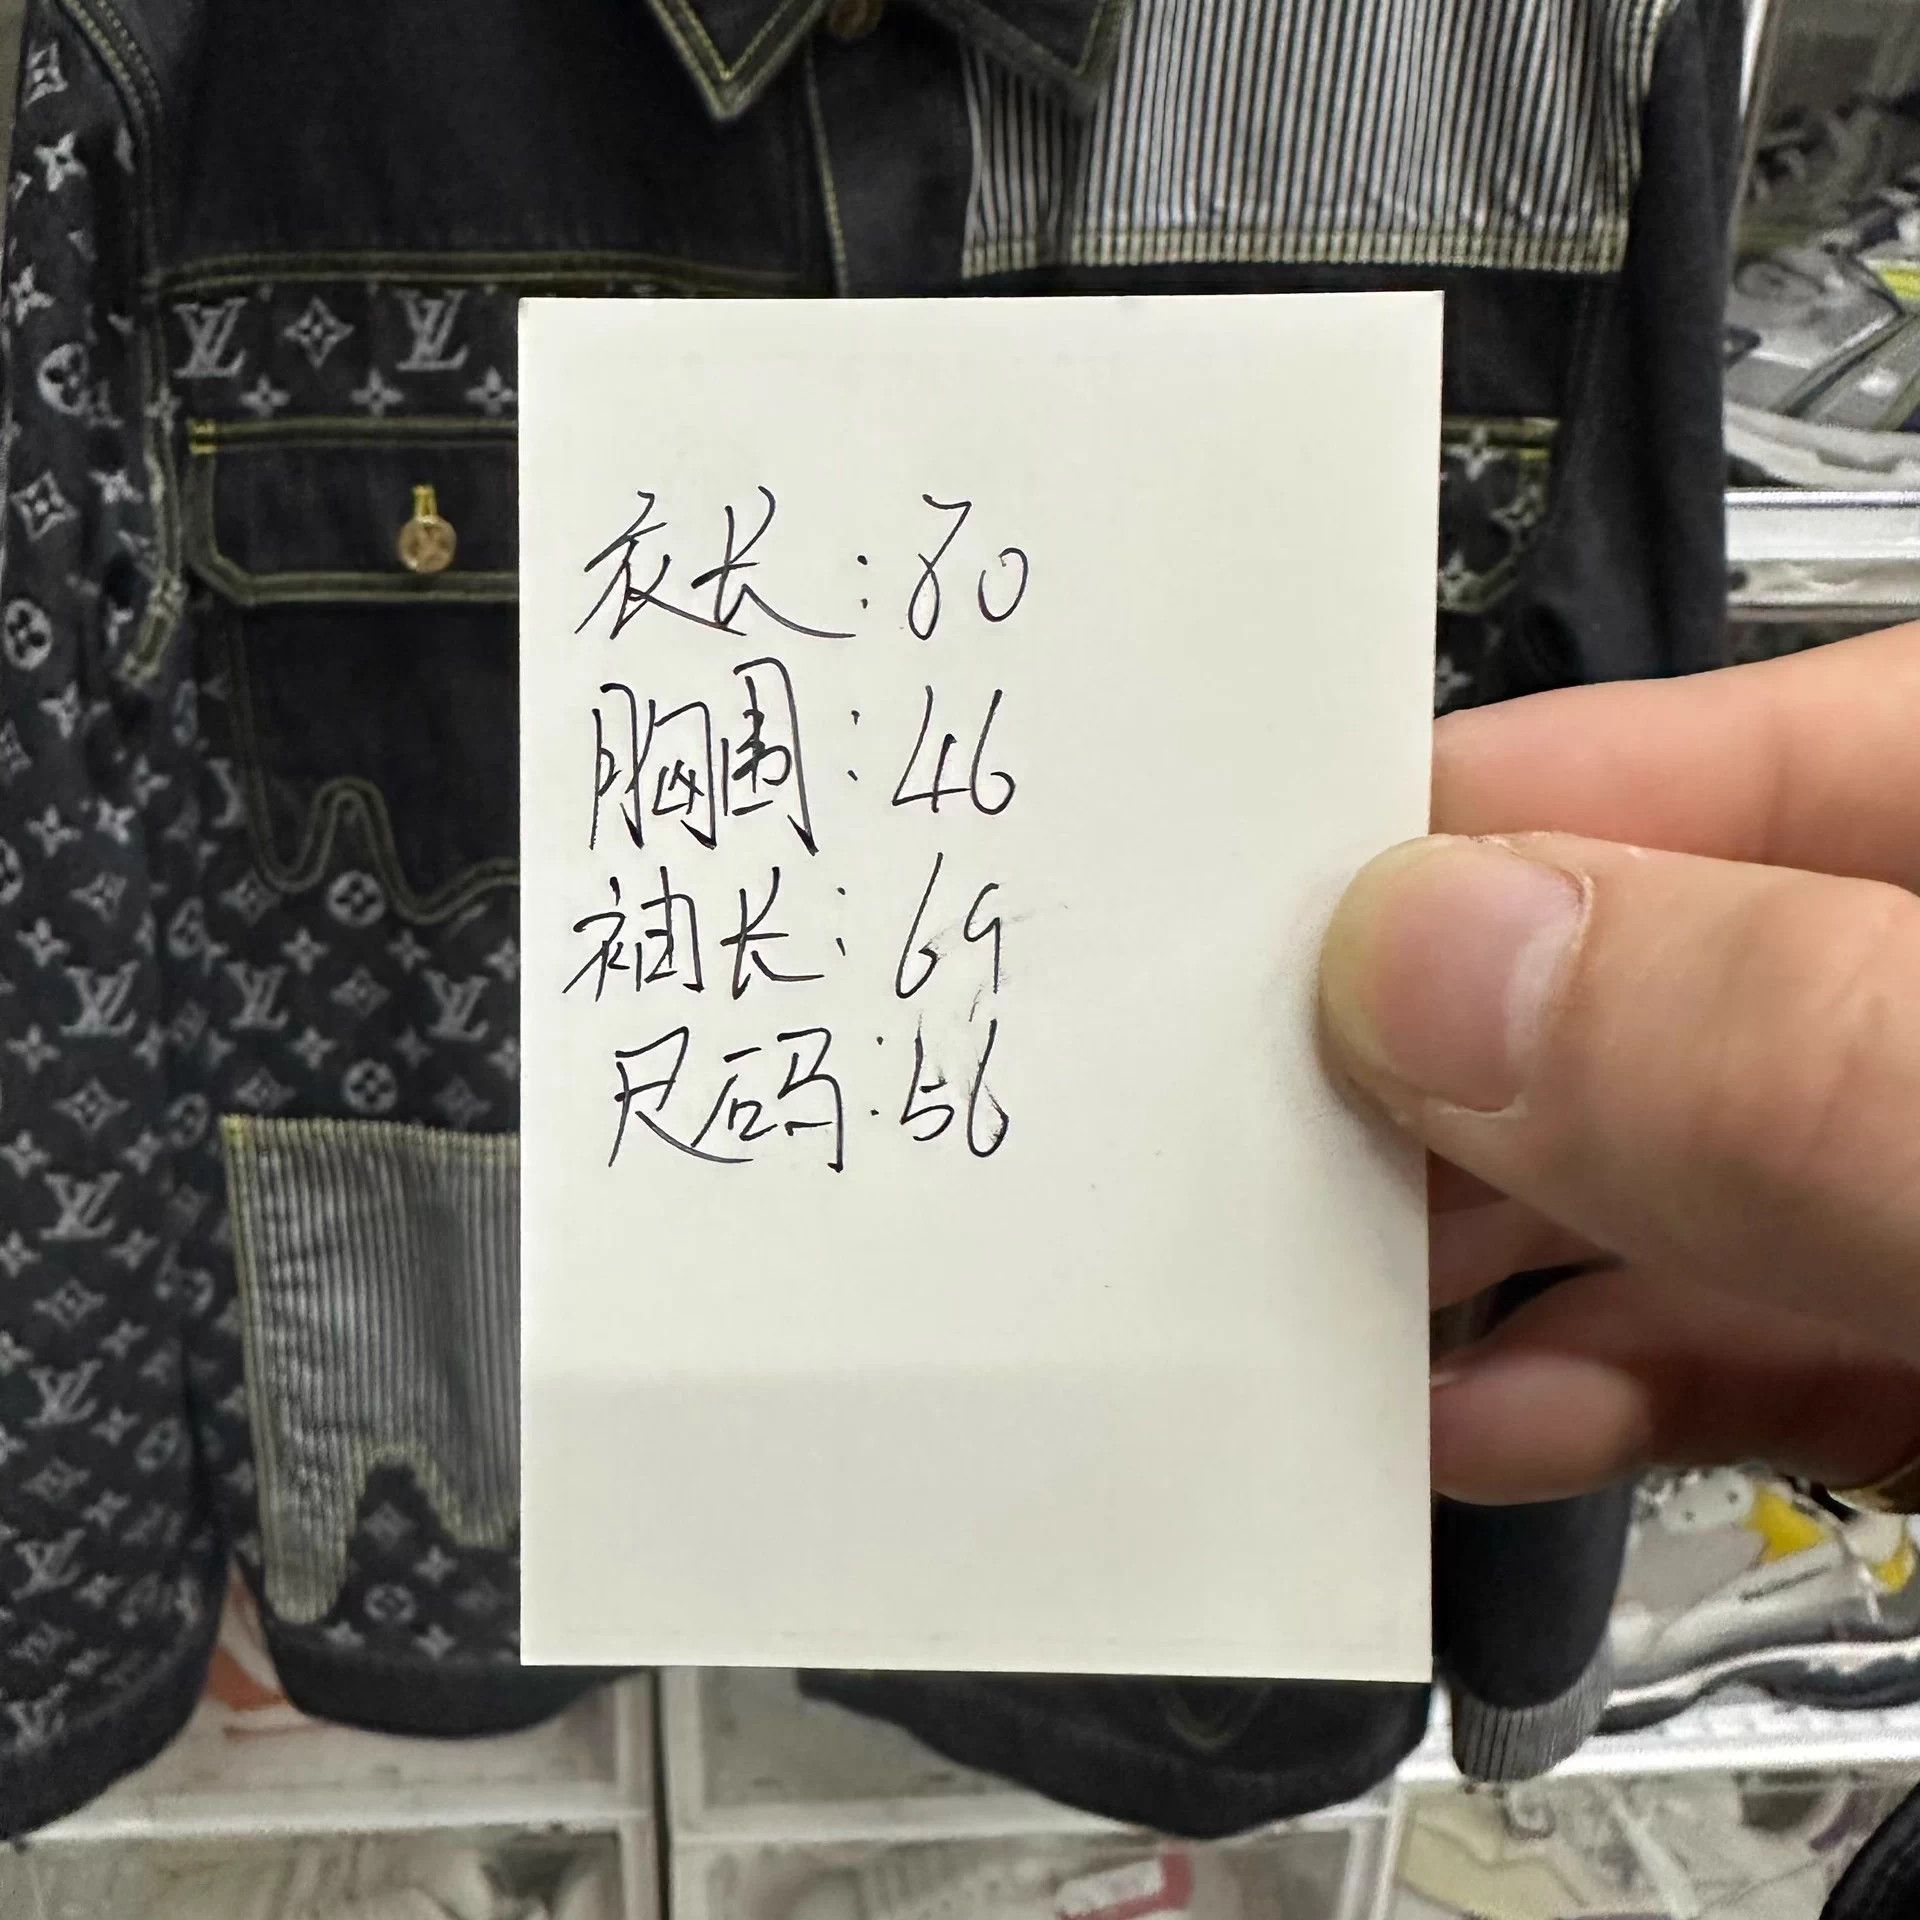 衣长:80
胸围:46
袖长:69
尺码:56